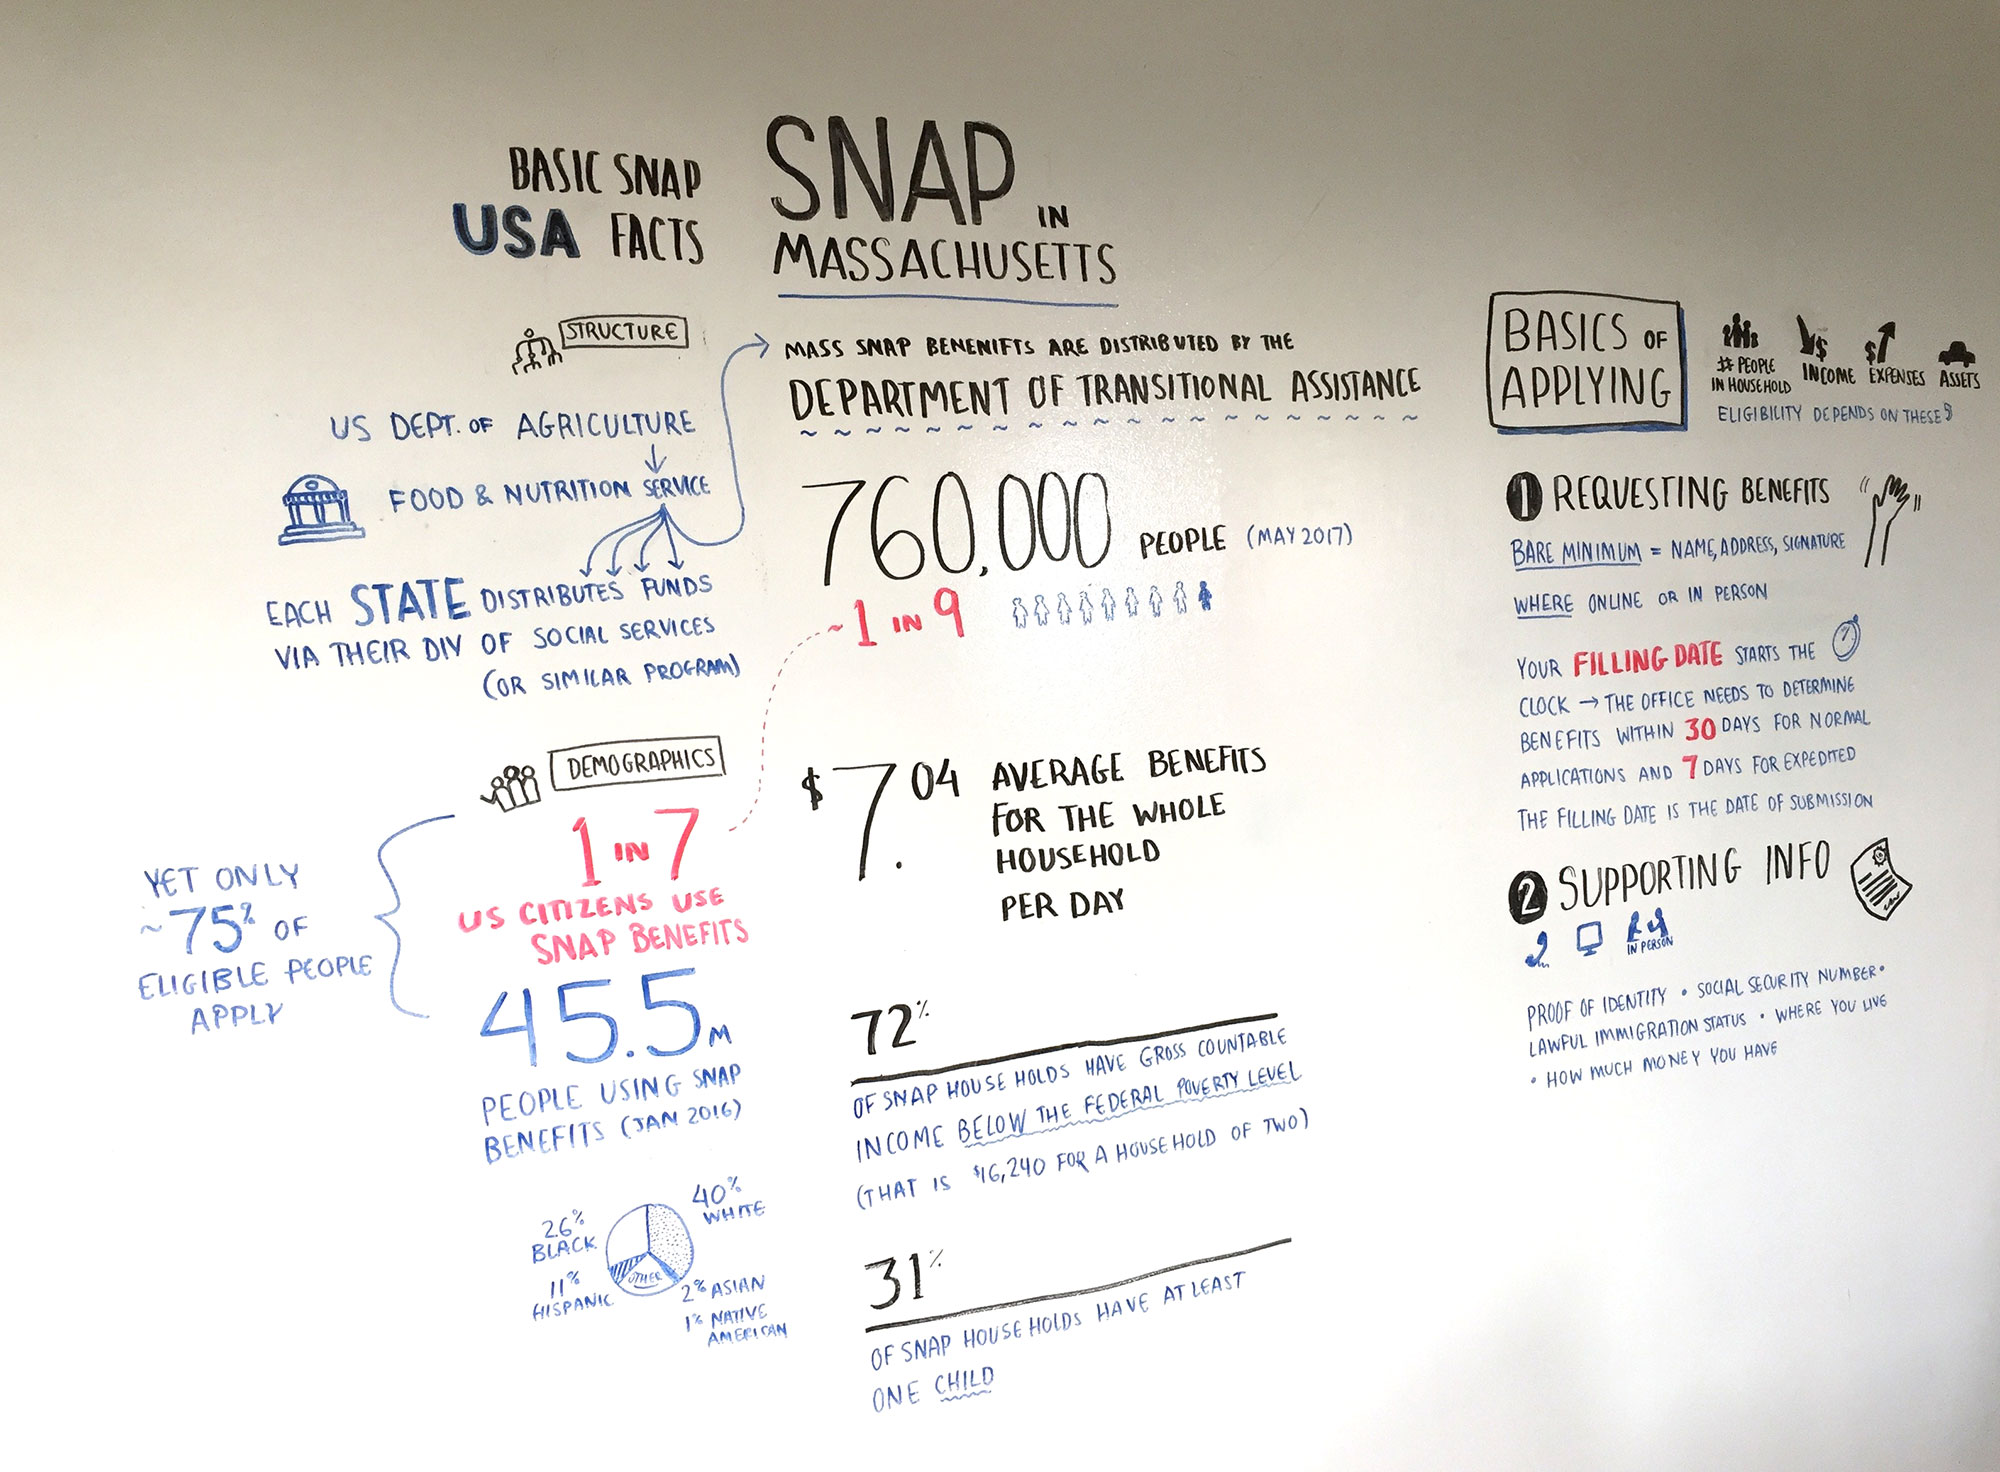 BASIC SNAP
USA FACTS
STRUCTURE
US DEPT. OF AGRICULTURE
FOOD & NUTRITION SERVICE
EACH STATE DISTRIBUTES FUNDS
VIA THEIR DIY OF SOCIAL SERVICES
(OR SIMILAR PROGRAM)
DEMOGRAPHICS
1 IN 7
US CITIZENS USE
SNAP BENEFITS
YET ONLY
~75% OF
ELIGIBLE PEOPLE
APPLY
45.5M
PEOPLE USING SNAP
BENEFITS (JAN 2016)
40%
WHITE
26%
BLACK
11%
HISPANIC
OTHER
2% ASIAN
1% NATIVE
AMERICAN
SNAP IN
MASSACHUSETTS
MASS SNAP BENENIFTS ARE DISTRIBUTED BY THE
DEPARTMENT OF TRANSITIONAL ASSISTANCE
760,000 PEOPLE (MAY 2017)
~1 IN 9
$7.04 AVERAGE BENEFITS
FOR THE WHOLE
HOUSEHOLD
PER DAY
72%
OF SNAP HOUSEHOLDS HAVE GROSS COUNTABLE
INCOME BELOW THE FEDERAL POVERTY LEVEL
(THAT IS $16,240 FOR A HOUSEHOLD OF TWO)
31%
OF SNAP HOUSEHOLDS HAVE AT LEAST
ONE CHILD
BASICS OF
APPLYING
# PEOPLE
IN HOUSEHOLD
$
INCOME
$
EXPENSES
ASSETS
ELIGIBILITY DEPENDS ON THESE
1 REQUESTING BENEFITS
BARE MINIMUM = NAME, ADDRESS, SIGNATURE
WHERE ONLINE OR IN PERSON
YOUR FILLING DATE STARTS THE
CLOCK → THE OFFICE NEEDS TO DETERMINE
BENEFITS WITHIN 30 DAYS FOR NORMAL
APPLICATIONS AND 7 DAYS FOR EXPEDITED
THE FILLING DATE IS THE DATE OF SUBMISSION
2 SUPPORTING INFO
IN PERSON
PROOF OF IDENTITY • SOCIAL SECURITY NUMBER •
LAWFUL IMMIGRATION STATUS • WHERE YOU LIVE
• HOW MUCH MONEY YOU HAVE